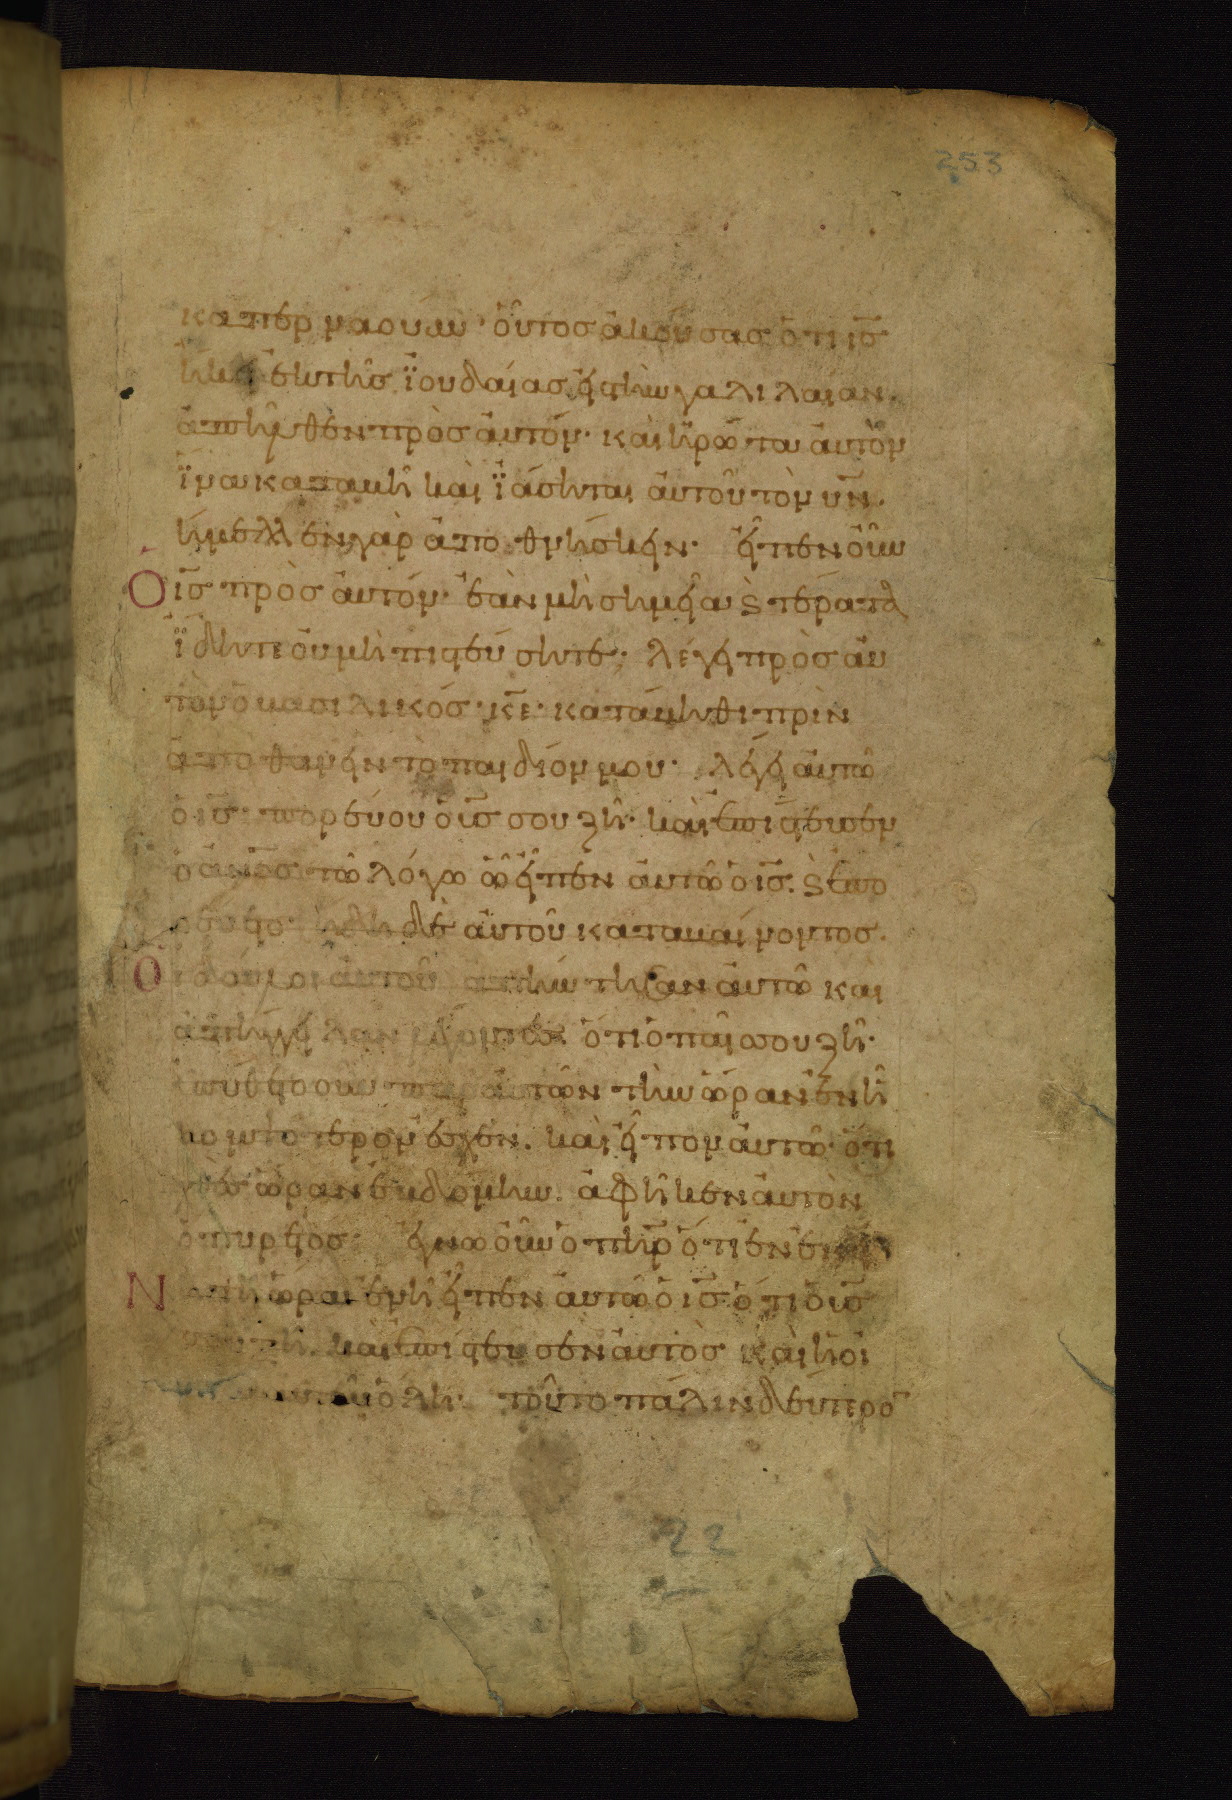 253
καπερναουμ· οὗτος ἀκούσας ὅτι ις
ἥκει ἐκ τῆς ϊουδαίας εἰς τὴν γαλιλαίαν·
ἀπῆλθεν πρὸς αὐτόν· καὶ ἠρώτα αὐτὸν
ϊνα καταβῆ καὶ ϊάσηται αὐτοῦ τὸν υν·
ἤμελλεν γὰρ ἀποθνήσκειν· εἶπεν οὖν
Ὁ ις πρὸς αὐτόν· ἐὰν μὴ σημεῖα ϗ τέρατα
ϊδητε οὐ μὴ πιστεύσητε· λέγει πρὸς αὐ
τὸν ὁ βασιλικός· κε· κατάβηθι πρὶν
ἀποθανεῖν τὸ παιδίον μου· λέγει αὐτῶ
ὁ ις· πορεύου ὁ υς σου ζῆ· καὶ ἐπίστευσεν
ὁ ανος τῶ λόγω ὧ εἶπεν αὐτῶ ὁ ις· ϗ ἐπο
ρεύετο· ἤδη δὲ αὐτοῦ καταβαίνοντος·
Οἱ δοῦλοι αὐτοῦ ἀπήντησαν αὐτῶ καὶ
ἀπήγγειλαν λέγοντες ὅτι ὁ παῖς σου ζῆ·
ἐπύθετο οὖν παρ αὐτῶν τὴν ὥραν ἐν ἧ
κομψότερον ἔσχεν· καὶ εἶπον αὐτῶ· ὅτι
χθὲς ὥραν ἑβδόμην· ἀφῆκεν αὐτὸν
ὁ πυρετός· ἔγνω οὖν ὁ πηρ ὅτι ἐν ἐκείνη
Ν τῆ ὥρα ἐν ἧ εἶπεν αὐτῶ ὁ ις ὅτι ὁ υς
σου ζῆ· καὶ ἐπίστευσεν αὐτὸς καὶ ἡ οἰ
κία αὐτοῦ ὅλη· τοῦτο πάλιν δεύτερο
22